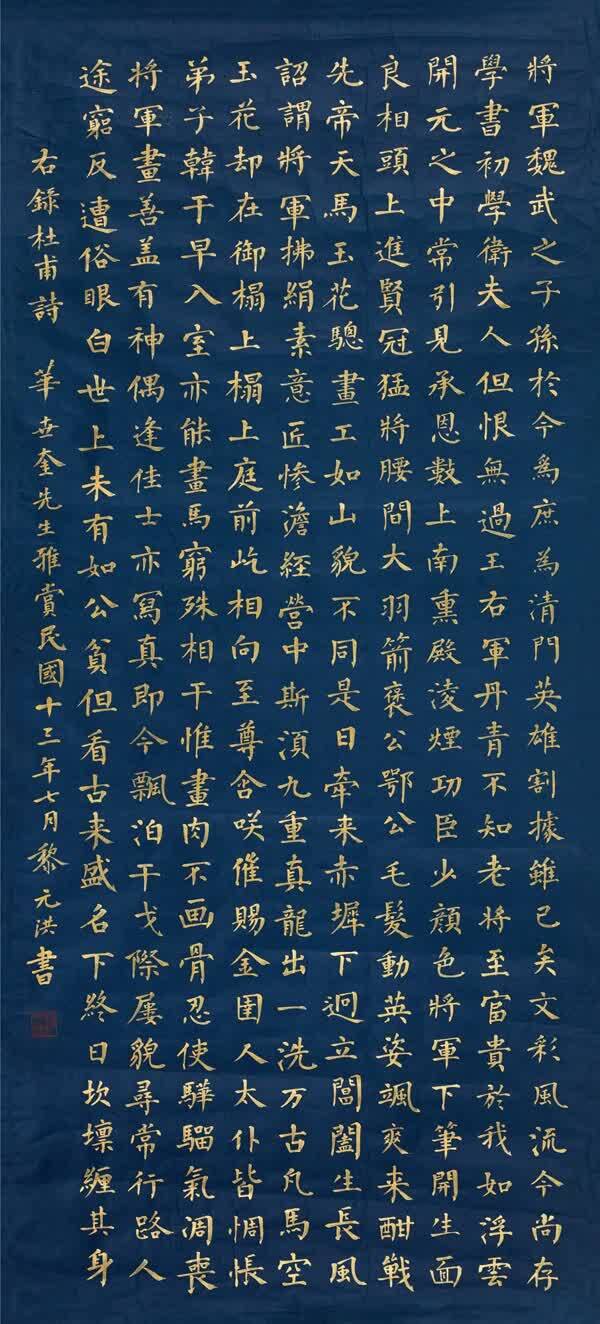 將軍魏武之子孫於今為庶為清門英雄割據雖已矣文彩風流今尚存
學書初學衛夫人但恨無過王右軍丹青不知老將至富貴於我如浮雲
開元之中常引見承恩數上南熏殿淩煙功臣少顏色將軍下筆開生面
良相頭上進賢冠猛將腰間大羽箭褒公鄂公毛髮動英姿颯爽来酣戰
先帝天馬玉花驄畫工如山貌不同是日牵来赤墀下迥立閶闔生長風
詔謂將軍拂絹素意匠惨澹經營中斯湏九重真龍出一洗万古凡馬空
玉花却在御榻上榻上庭前屹相向至尊含咲催賜金圉人太仆皆惆悵
弟子韓干早入室亦能畫馬窮殊相干惟畫肉不画骨忍使驊騮氣凋喪
将軍畫善盖有神偶逢佳士亦寫真即今飄泊干戈際屢貌尋常行路人
途窮反遭俗眼白世上未有如公貧但看古来盛名下終日坎壈纏其身
右錄杜甫詩 華世奎先生雅賞民國十三年七月黎元洪書